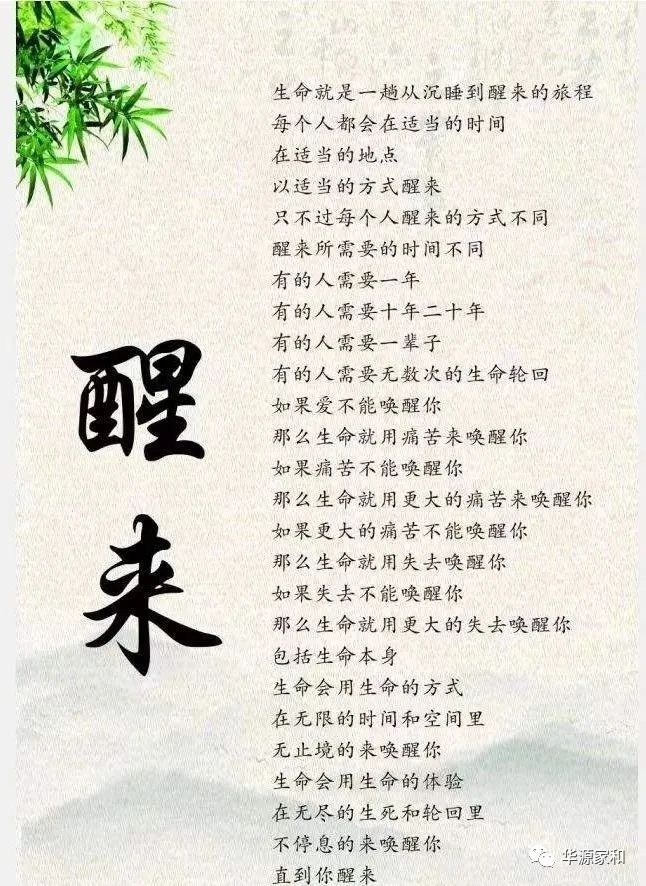 醒来
生命就是一趟从沉睡到醒来的旅程
每个人都会在适当的时间
在适当的地点
以适当的方式醒来
只不过每个人醒来的方式不同
醒来所需要的时间不同
有的人需要一年
有的人需要十年二十年
有的人需要一辈子
有的人需要无数次的生命轮回
如果爱不能唤醒你
那么生命就用痛苦来唤醒你
如果痛苦不能唤醒你
那么生命就用更大的痛苦来唤醒你
如果更大的痛苦不能唤醒你
那么生命就用失去唤醒你
如果失去不能唤醒你
那么生命就用更大的失去唤醒你
包括生命本身
生命会用生命的方式
在无限的时间和空间里
无止境的来唤醒你
生命会用生命的体验
在无尽的生死和轮回里
不停息的来唤醒你
直到你醒来
华源家和